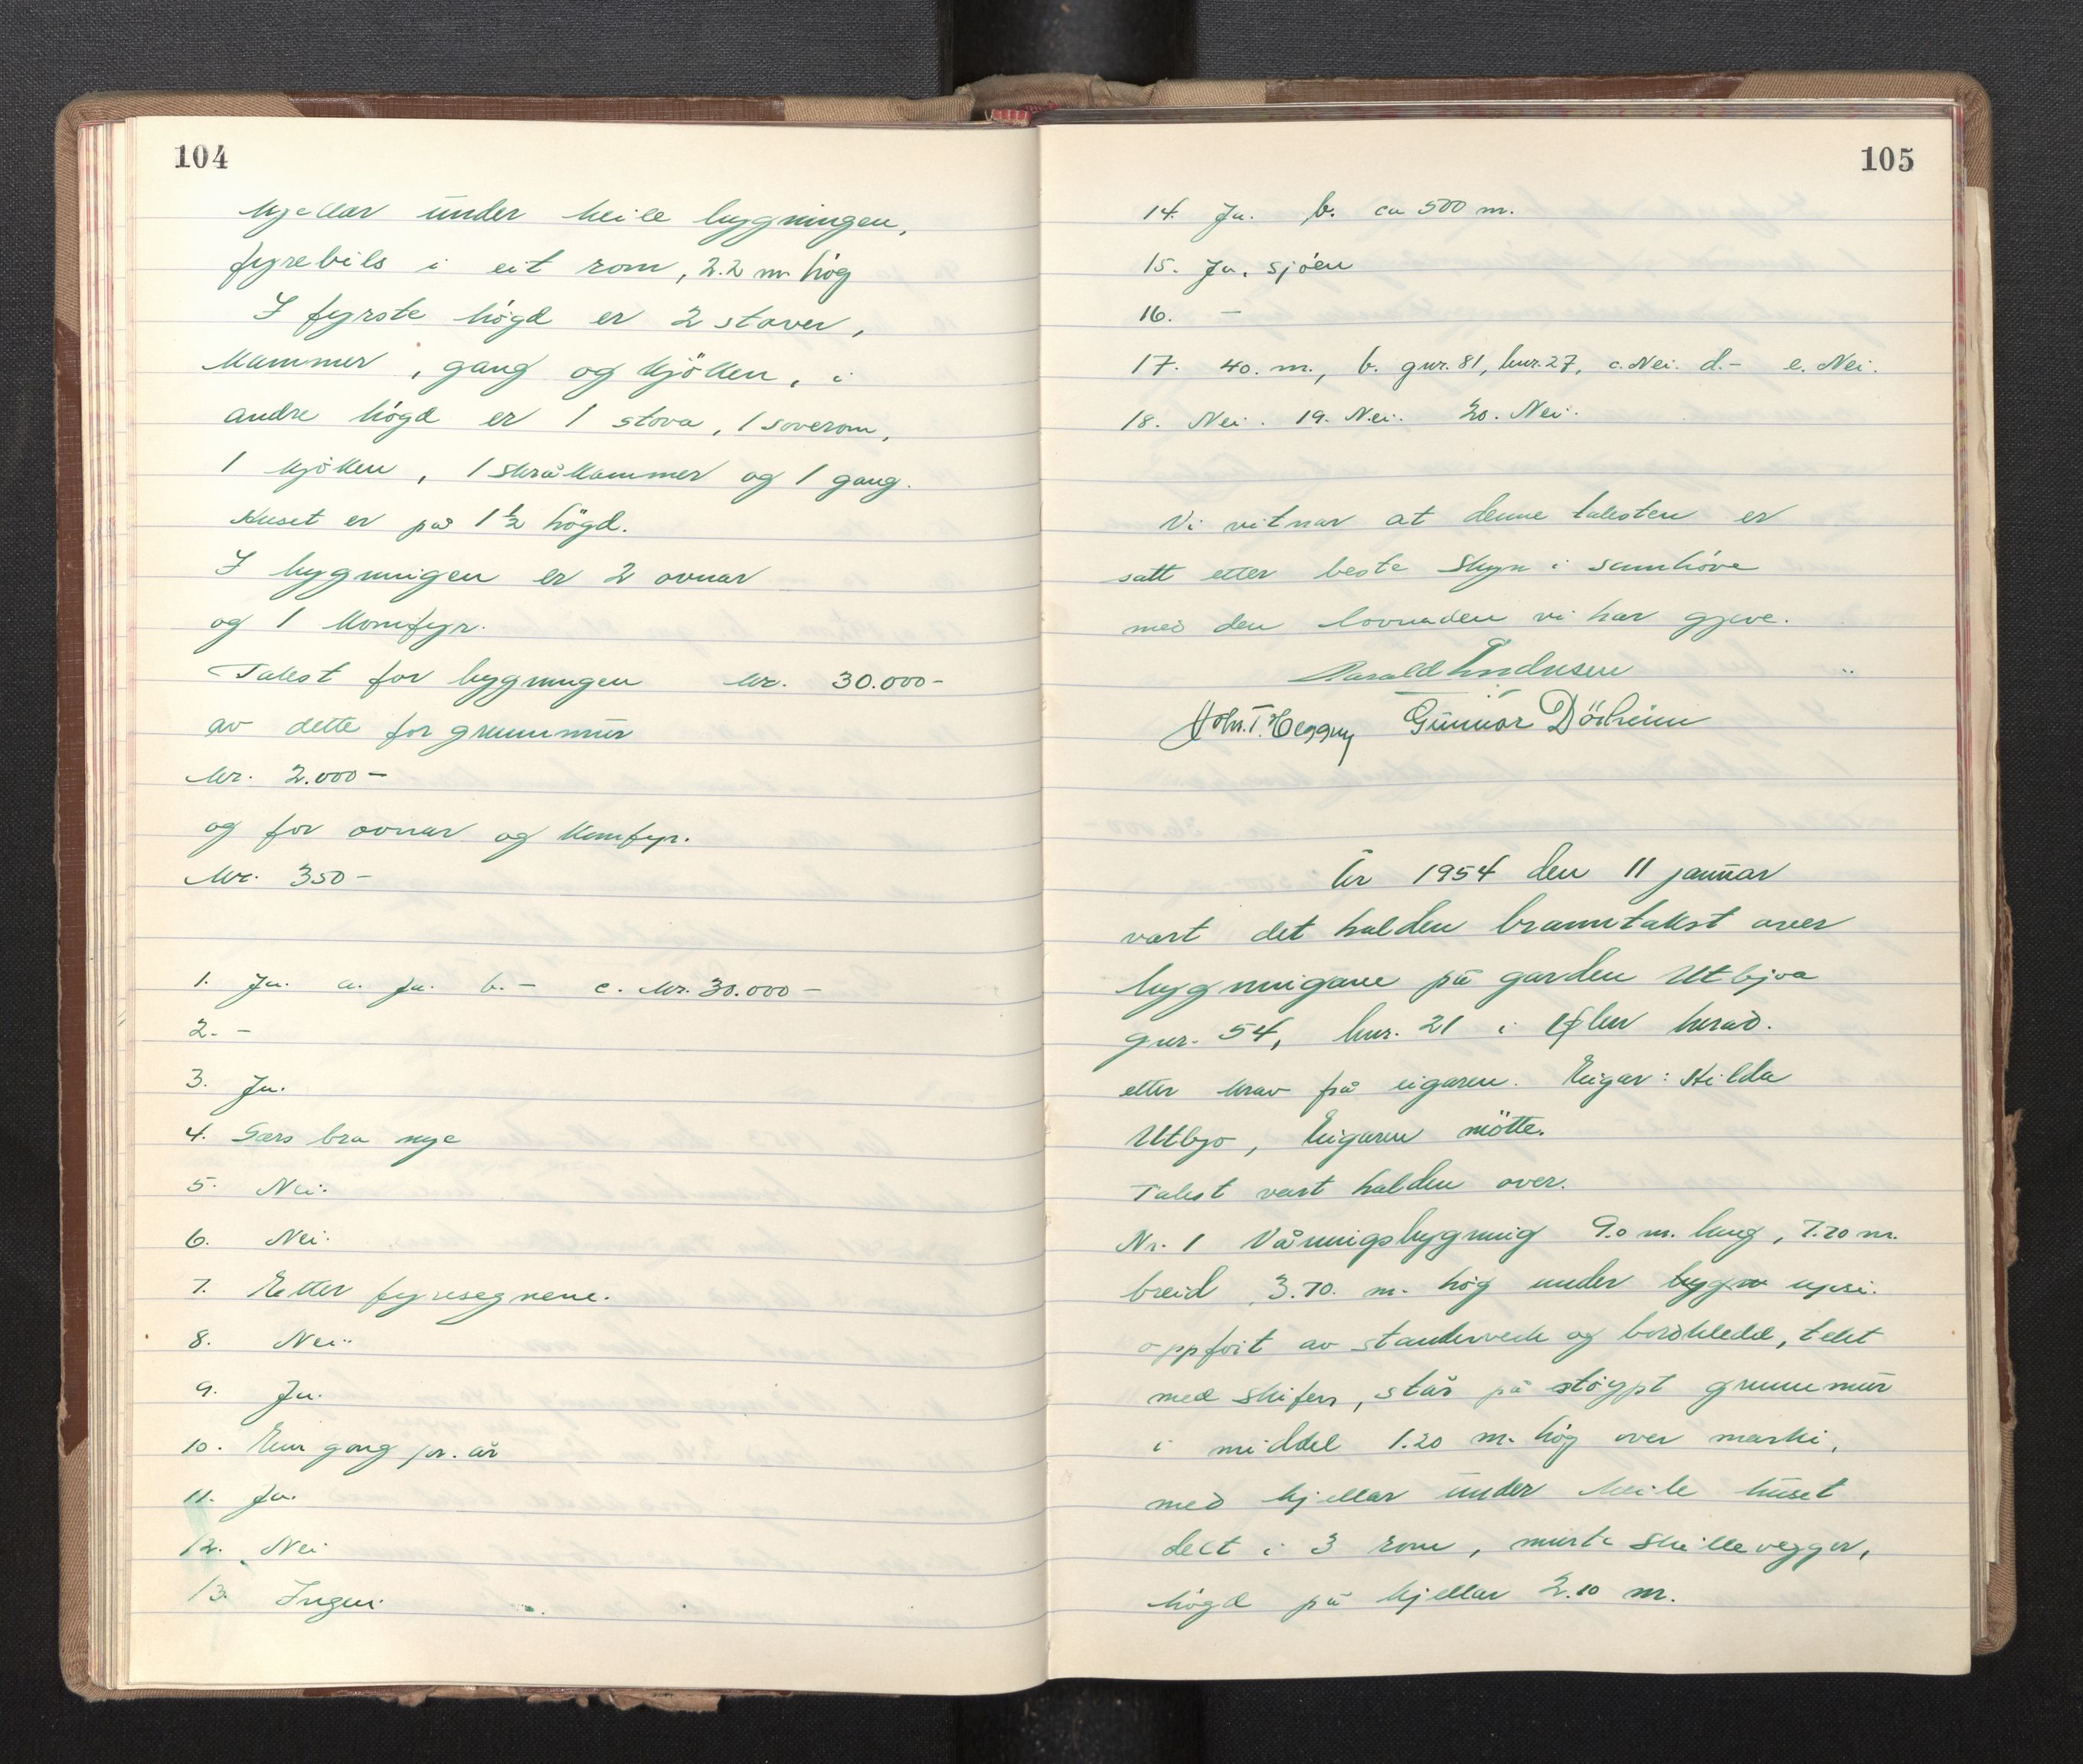 104
kjellar under heile bygningen,
fyrebils i eit rom, 2.2 m. høg
I fyrste høgd er 2 stover,
kammer, gang og kjöken, i
andre høgd er 1 stova, 1 soverom,
1 kjöken, 1 skråkammer og 1 gang.
Huset er på 1 1/2 högd.
I bygningen er 2 ovnar
og 1 komfyr.
Takst for bygningen kr. 30.000-
av dette for grunnmur
kr. 2.000-
og for ovnar og komfyr.
kr. 350-
1. Ja. a. ja. b. - c. kr. 30.000-
2. -
3. Ja.
4. Særs bra nye
5. Nei.
6. Nei.
7. Etter fyresegnene.
8. Nei.
9. Ja.
10. Ein gong pr. år
11. Ja.
12. Nei
13. Ingen.
105
14. Ja. b. ca 500 m.
15. Ja, sjöen
16. -
17. 40. m., b. gnr. 81, bnr. 27, c. Nei. d. - e. Nei.
18. Nei. 19. Nei. 20. Nei.
Vi vitnar at denne taksten er
satt etter beste skyn i samhöve
med den lovnaden vi har gjeve.
Harald Endresen
Joh. T. Heggøy Gunnar Döšheim
År 1954 den 11 januar
vart det halden branntakst over
bygningane på garden Utbjoa
gnr. 54, bnr. 21 i Ølen herad.
etter krav frå eigaren. Eigar: Hilda
Utbjo, Eigaren mötte.
Takst vart halden over.
Nr. 1 Våningsbygning 9.0 m. lang, 7.20 m.
breid, 3.70. m. høg under bygn upsi.
oppfört av standerverk og bordkledd, tekt
med skifer, står på stöypt grunnmur
i middel 1.20 m. høg over marki,
med kjellar under heile huset
delt i 3 rom, murte skillevegger,
høgd på kjellar 2.10 m.